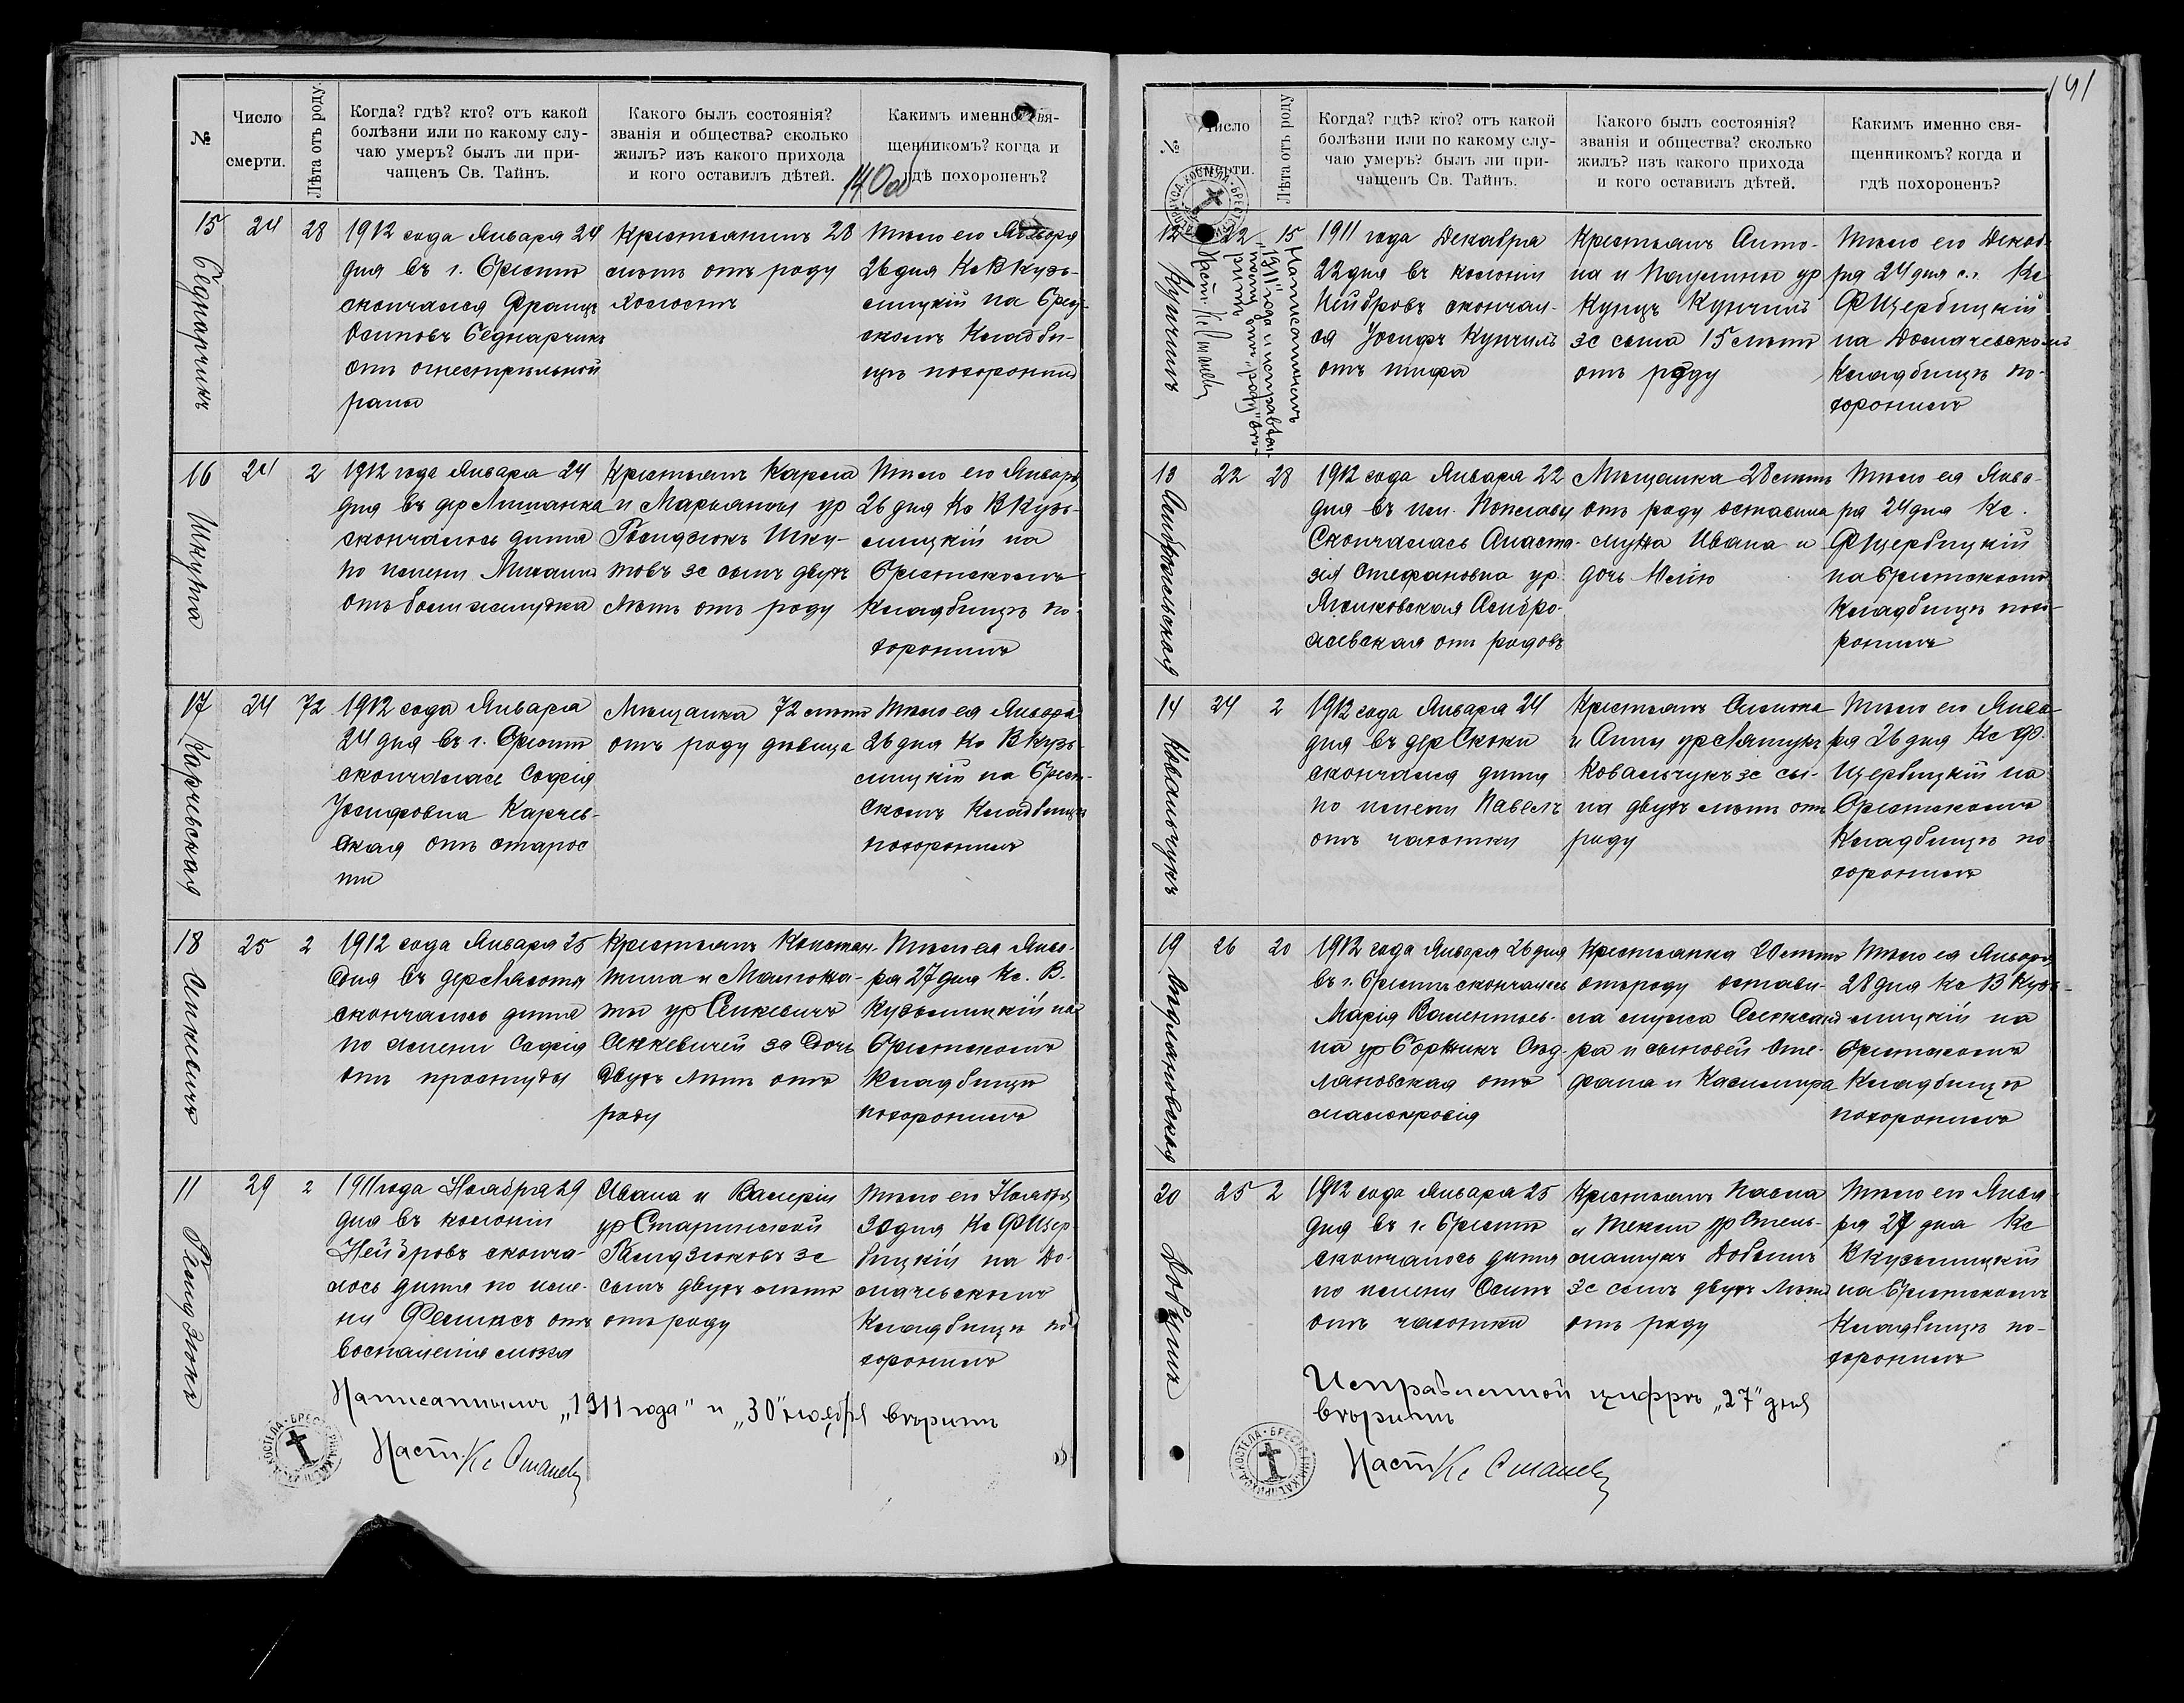 №
Число
смерти.
Лѣта отъ роду.
Когда? гдѣ? кто? отъ какой
болѣзни или по какому слу-
чаю умеръ? былъ ли при-
чащенъ Св. Тайнъ.
Какого былъ состоянія?
званія и общества? сколько
жилъ? изъ какого прихода
и кого оставилъ дѣтей.
Какимъ именно свя-
щенникомъ? когда и
гдѣ похороненъ?
15
Беднарчикъ
24
28
1912 года Января 24
дня въ г. Брестѣ
скончался Францъ
Осиповъ Беднарчикъ
отъ огнестрѣльной
раны
Крестьянинъ 28
лѣтъ отъ роду
холостъ
Тѣло его Января
26 дня Кс В Кузь-
мицкій на Брест-
скомъ Кладби-
щѣ похоронилъ
16
Шкута
24
2
1912 года Января 24
дня въ дер
скончалось дитя
по имени Михаилъ
отъ боли желудка
Крестьянъ Карла
и Марьянны ур
отъ роду
Тѣло его Января
26 дня Кс В Кузь-
мицкій на
Брестскомъ
Кладбищѣ по-
хоронилъ
17
Карчевская
24
72
1912 года Января
24 дня въ г. Брестѣ
скончалась Софія
Іосифовна Карчев-
ская отъ старос
ти
Мѣщанка 72 лѣтъ
отъ роду дѣвица
Тѣло ея Января
26 дня Кс В Кузь-
мицкій на Брест-
скомъ Кладбищѣ
похоронилъ
18
Синкевичъ
25
2
1912 года Января 25
дня въ дер Лясоты
скончалось дитя
по имени Софія
отъ простуды
Крестьянъ Констан-
тина и Малгожа-
ты ур
за дочь
двухъ лѣтъ отъ
роду
Тѣло ея Янва-
ря 27 дня Кс. В.
Кузьмицкій на
Брестскомъ
Кладбищѣ
похоронилъ
11
Гольдзюкъ
29
2
1911 года Ноября 29
дня въ колоніи
Нейбровъ сконча-
лось дитя по име-
ни Феликсъ отъ
воспаленія мозга
Ивана и Валеріи
ур
зс
сынъ двухъ лѣтъ
отъ роду
Тѣло его Ноября
30 дня Кс Ф Щер-
бицкій на До-
мачевскомъ
Кладбищѣ по-
хоронилъ
Написаннымъ „1911 года" и „30" ноября вѣрить
Наст. Кс
№
Число
смерти.
Лѣта отъ роду
Когда? гдѣ? кто? отъ какой
болѣзни или по какому слу-
чаю умеръ? былъ ли при-
чащенъ Св. Тайнъ.
Какого былъ состоянія?
званія и общества? сколько
жилъ? изъ какого прихода
и кого оставилъ дѣтей.
Какимъ именно свя-
щенникомъ? когда и
гдѣ похороненъ?
191
12
Кунчилъ
22
15
Написаннымъ
„1911" года и исправлен-
Наст. Кс
1911 года Декабря
22 дня въ колоніи
Нейбровъ скончал-
ся Іосифъ Кунчилъ
отъ тифа
Крестьянъ Анто-
на и Паулины ур
Кунцъ Кунчилъ
зс сына 15 лѣтъ
отъ роду
Тѣло его Декаб-
ря 24 дня с.г. Кс
Ф Щербицкій
на Домачевскомъ
Кладбищѣ по-
хоронилъ
13
22
28
1912 года Января 22
дня въ им. Поплавы
Скончалась Анаста-
зія Стефановна ур.
отъ родовъ
Мѣщанка 28 лѣтъ
отъ роду оставила
мужа Ивана и
дочь Юлію
Тѣло ея Янва-
ря 24 дня Кс.
Ф Щербицкій
на Брестскомъ
Кладбищѣ похо-
ронилъ
14
Ковальчукъ
24
2
1912 года Января 24
дня въ дер Скоки
скончался дитя
по имени Павелъ
отъ чахотки
Крестьянъ
и Анны ур
Ковальчукъ зс сы-
на двухъ лѣтъ отъ
роду
Тѣло его Янва-
ря 26 дня Кс Ф.
Щербицкій на
Брестскомъ
Кладбищѣ по-
хоронилъ
19
26
20
1912 года Января 26 дня
въ г. Брестѣ скончалась
Марія Валентьев-
на ур
отъ
малокровія
Крестьянка 20 лѣтъ
отъ роду остави-
ла мужа Александ
ра и сыновей Сте-
фана и Касимира
Тѣло ея Января
28 дня Кс В Кузь-
мицкій на
Брестскомъ
Кладбищѣ
похоронилъ
20
25
2
1912 года Января 25
дня въ г. Брестѣ
скончалось дитя
по имени Осипъ
отъ чахотки
Крестьянъ Павла
и Теклы ур
зс сынъ двухъ лѣтъ
отъ роду
Тѣло его Янва-
ря 27 дня Кс
В Кузьмицкій
на Брестскомъ
Кладбищѣ по-
хоронилъ
Исправленной цифрѣ „27" дня
вѣрить
Наст. Кс